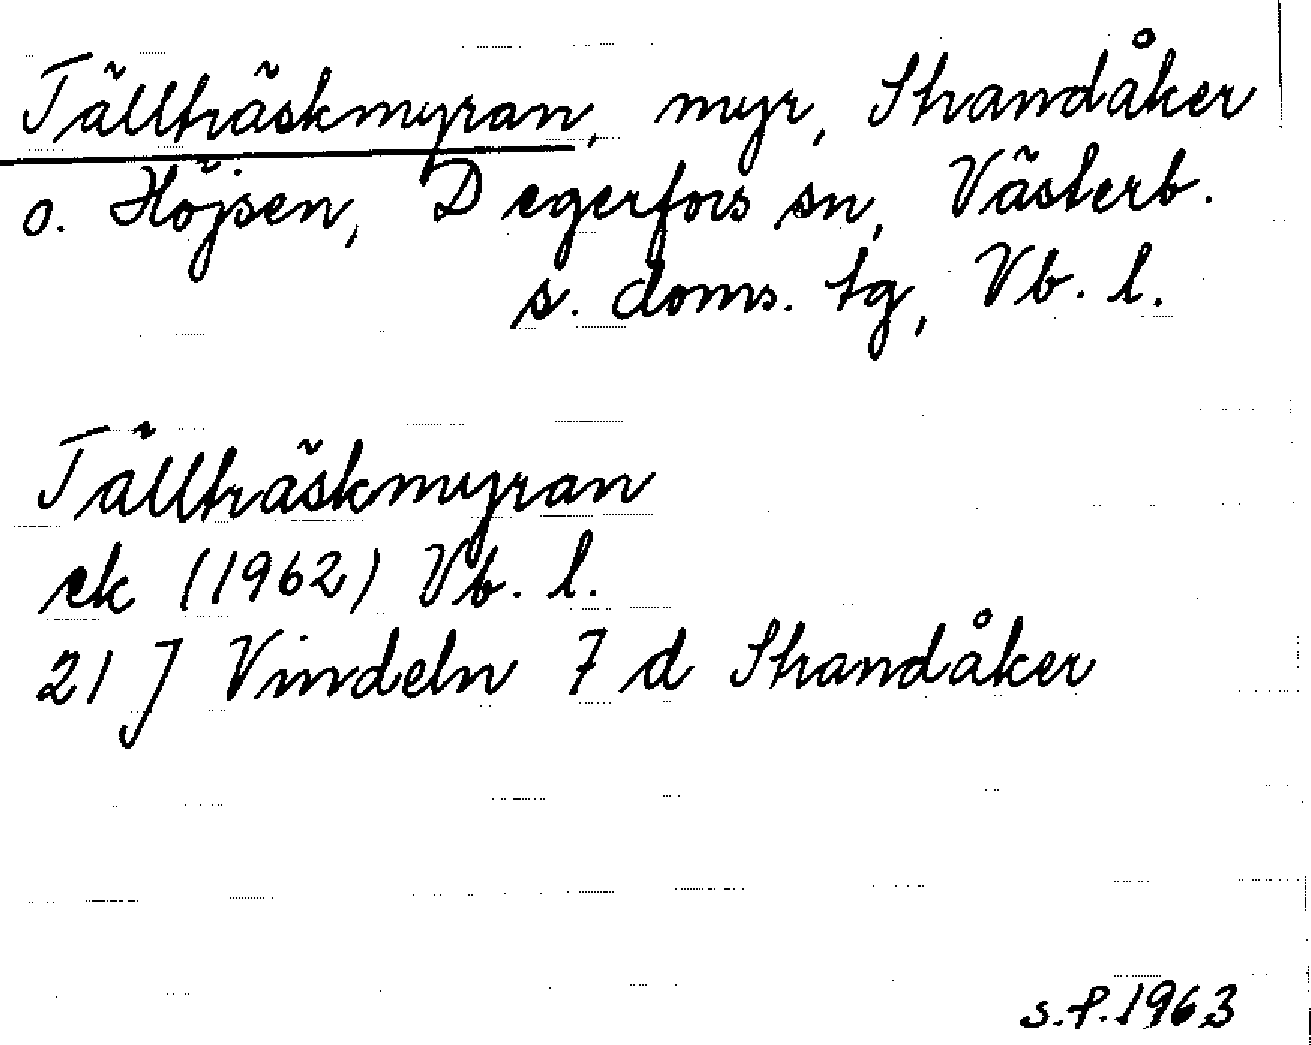 Tällträskmyran, myr, Strandåker
o. Höjsen, Degerfors sn, Västerb.
s. doms. tg, Vb. l.
Tällträskmyran
ek (1962) Vb. l.
21 J Vindeln 7 d Strandåker
S.P. 1963